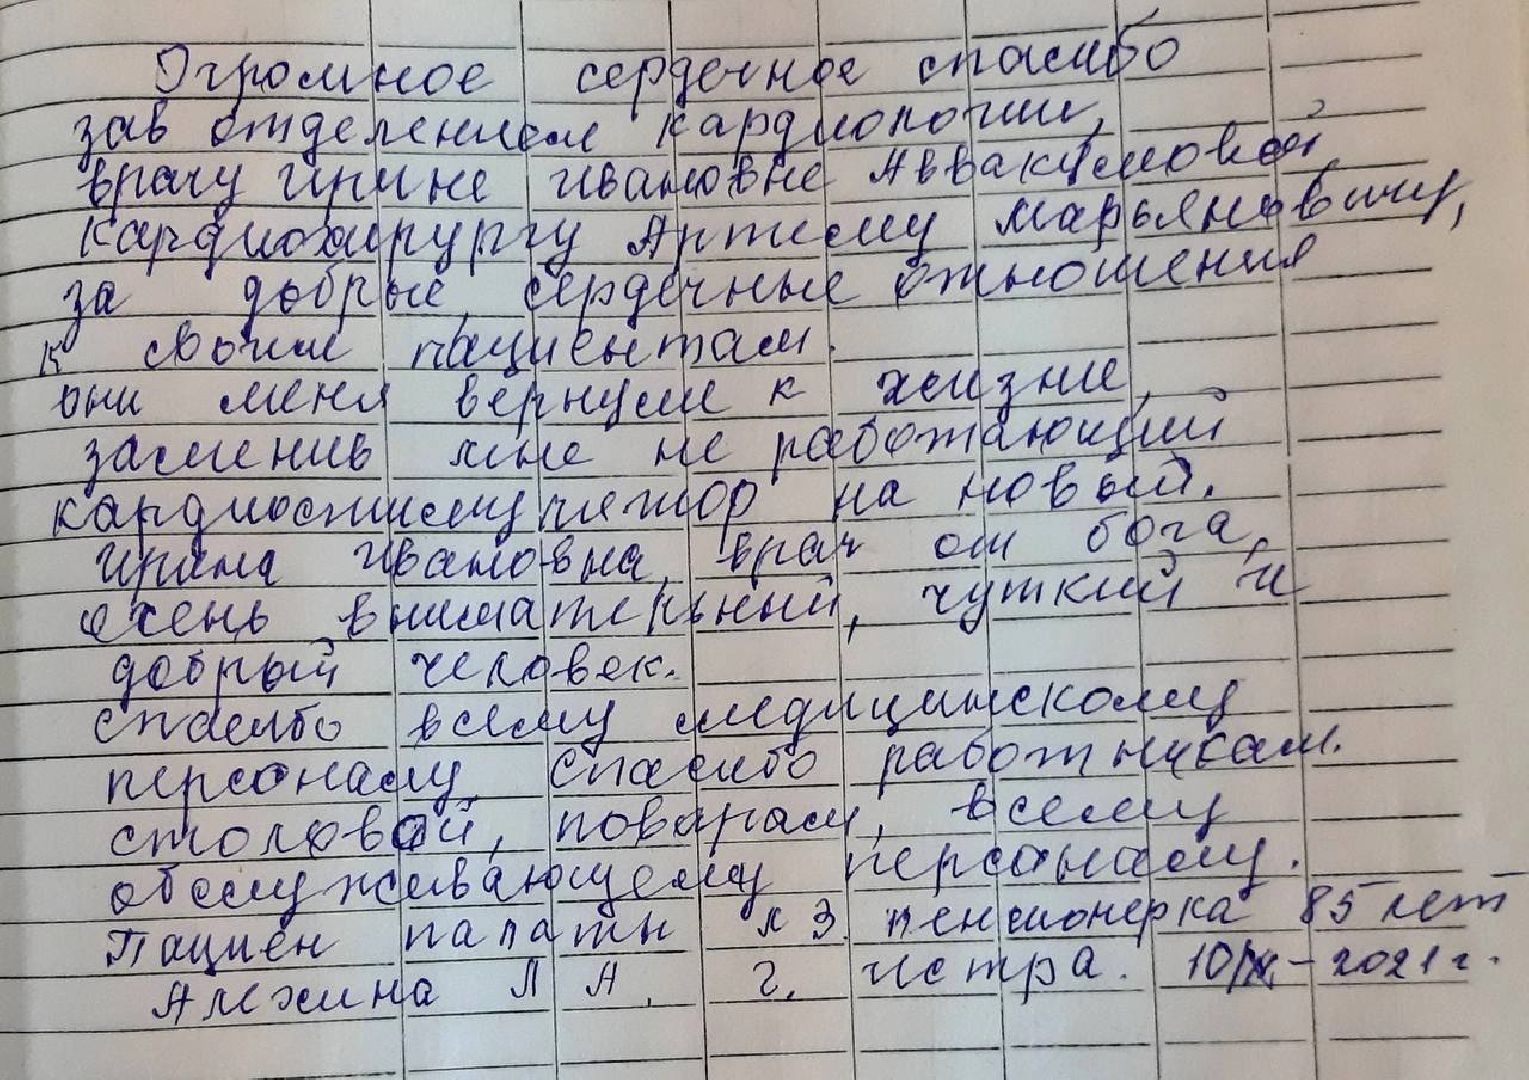 Огромное сердечное спасибо
зав отделением кардиологии,
врачу Ирине Ивановне Аввакумовой,
кардиохирургу Артему Марьяновичу,
за добрые, сердечные отношения
к своим пациентам.
они меня вернули к жизни,
заменив мне не работающий
кардиостимулчятор на новый.
Ирина Ивановна врач от бога,
очень внимательный, чуткий и
добрый человек.
спасибо всему медицинскому
персоналу, спасибо работникам.
столовой, поварам, всему
обслуживающему персоналу.
Пациен палаты №3 пенсионерка 85 лет
Алехина Л А. г. Истра. 10/ – 2021г.